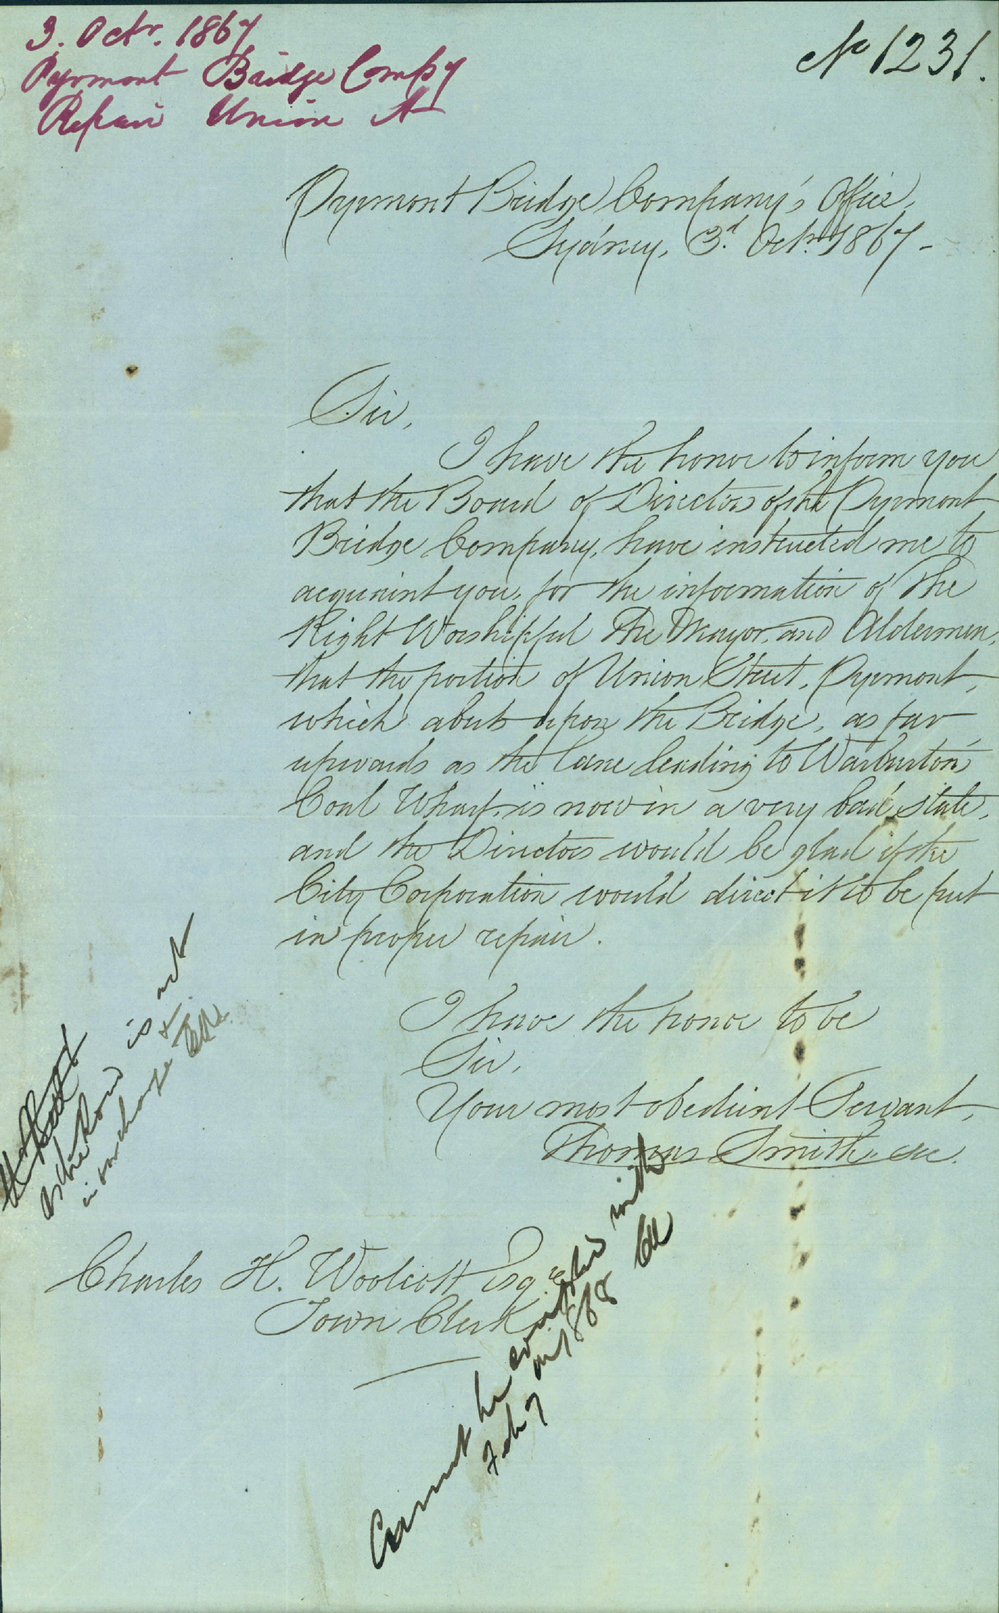 3. Octr. 1867
Pyrmont Bridge Compy
Repair Union St
No 1231.
Pyrmont Bridge Company's Office,
Sydney, 3d. Octr. 1867-
Sir,
I have the honor to inform you
that the Board of Directors of the Pyrmont
Bridge Company, have instructed me to
acquaint you, for the information of The
Right Worshipful The Mayor and Aldermen,
that the portion of Union Street, Pyrmont,
which abuts upon the Bridge, as far
upwards as the lane leading to Warburton's
Coal Wharf, is now in a very bad state,
and the Directors would be glad if the
City Corporation would direct it to be put
in proper repair.
I have the honor to be
Sir,
Your most obedient Servant,
Thomas Smith, Sec.
is not
in charge
Charles H. Woolcott Esqre
Town Clerk
Cannot be complied with
Feby 1868